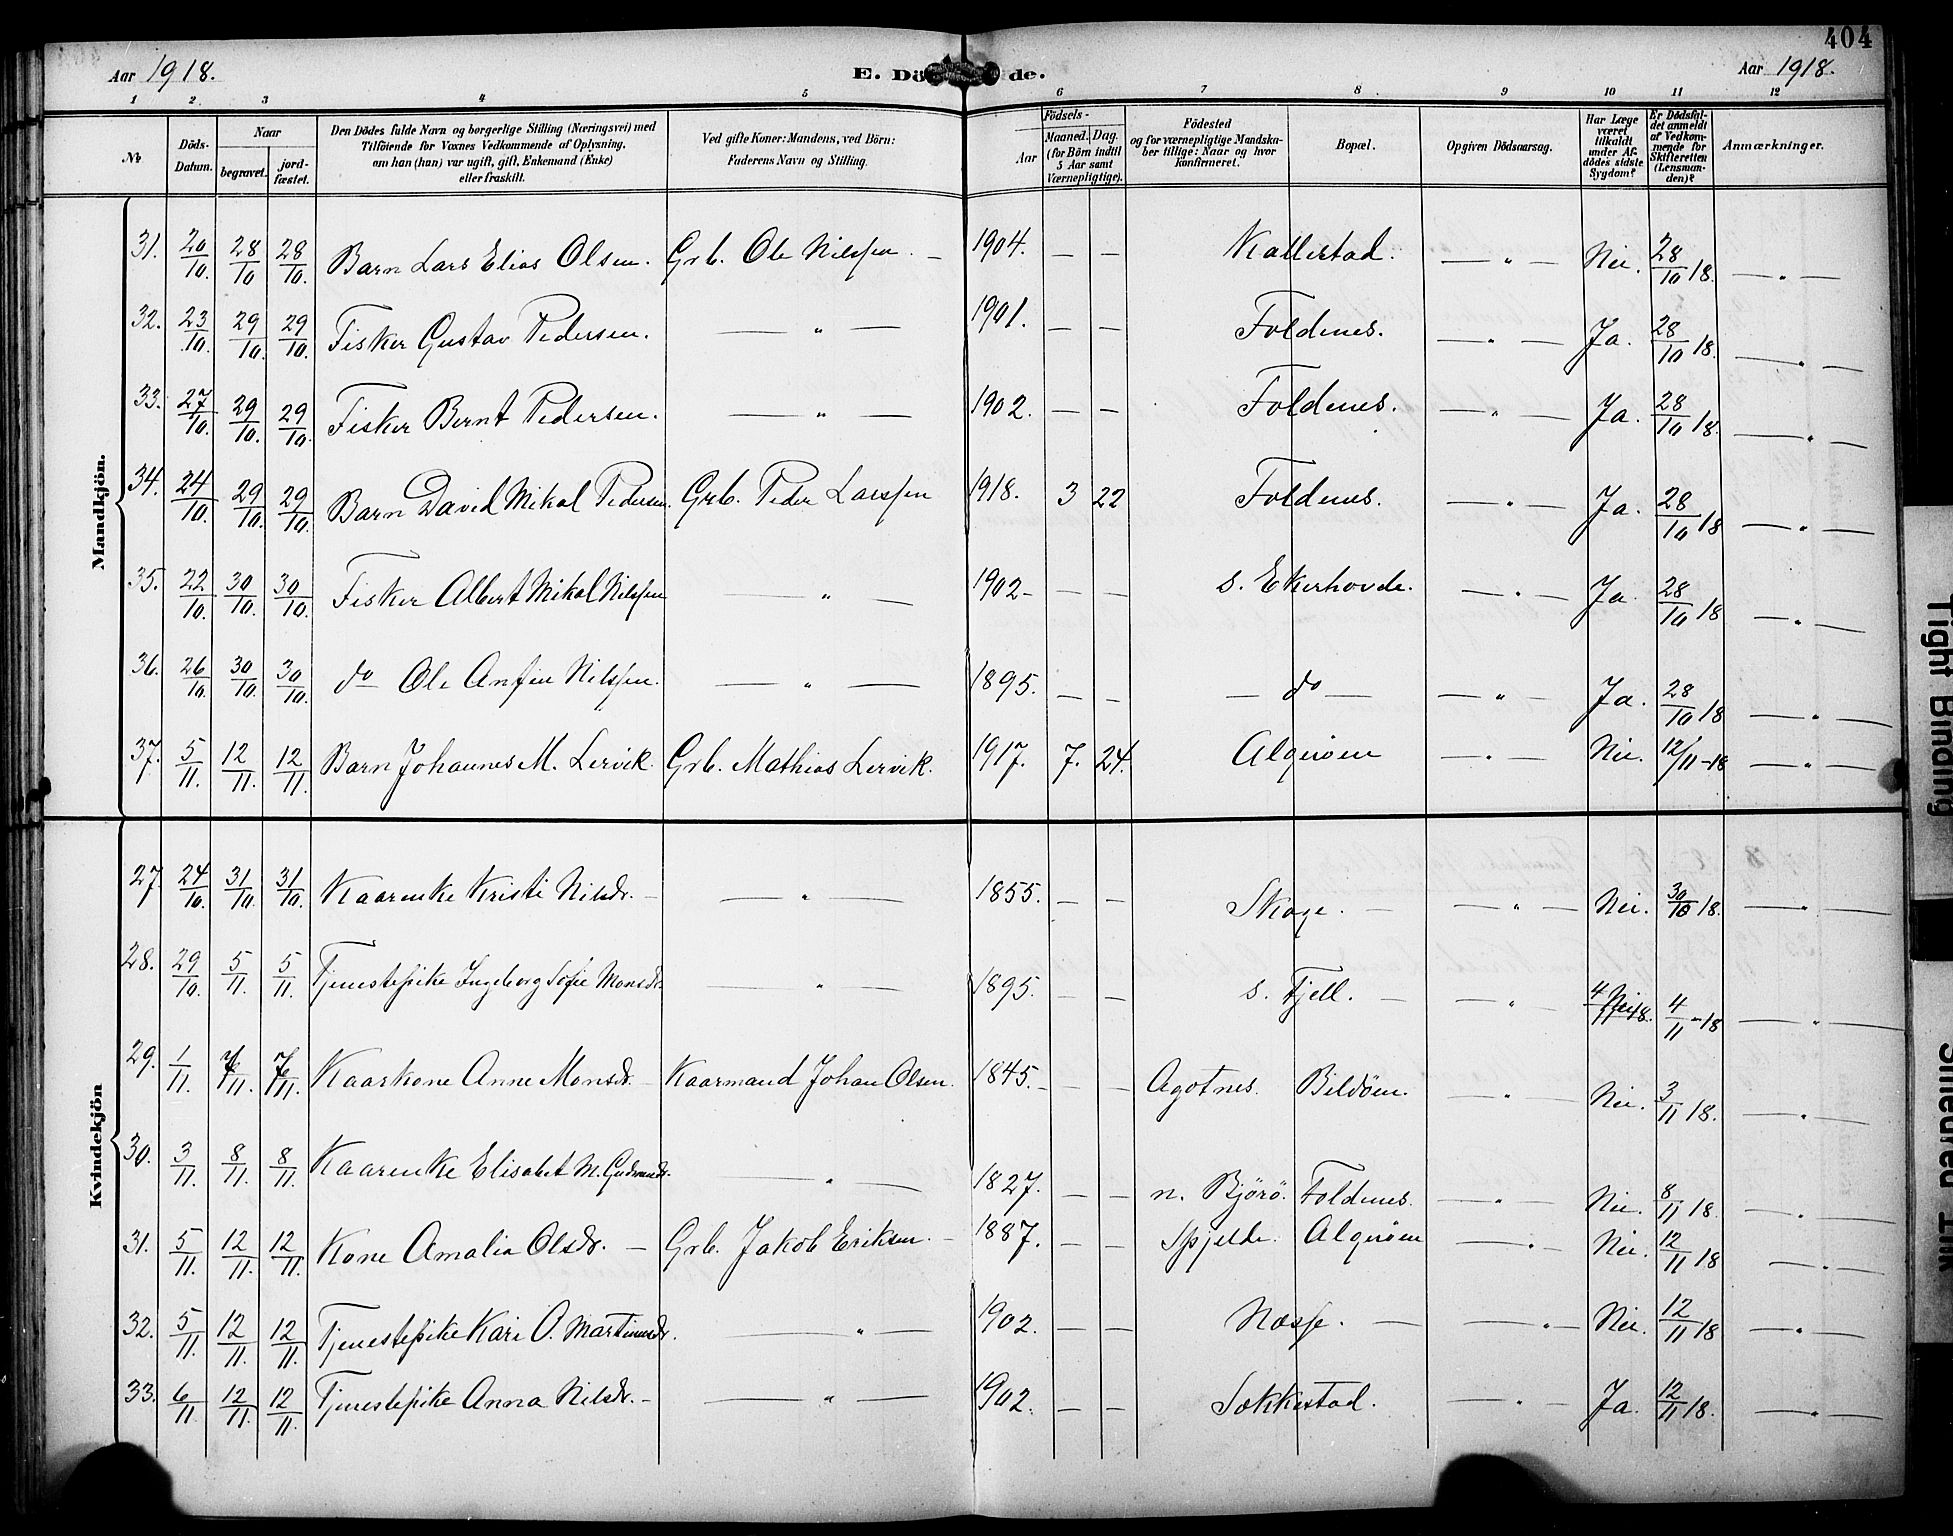 404
Aar 1918. E. Dö de. Aar 1918.
1 2. 3 4 5 6 7 8 9 10 11 12
No Döds-Datum. Naar begravet. jord-fæstet. Den Dödes fulde Navn og borgerlige Stilling (Næringsvei) med Tilföiende for Voxnes Vedkommende af Oplysning, om han (hun) var ugift, gift, Enkemand (Enke) eller fraskilt. Ved gifte Koner: Mandens, ved Börn: Faderens Navn og Stilling. Födsels- Aar Maaned. Dag. (for Börn indtil 5 Aar samt Værnepligtige). Födested og for værnepligtige Mandskaber tillige: Naar og hvor konfirmeret. Bopæl. Opgiven Dödsaarsag. Har Læge været tilkaldt under Afdödes sidste Sygdom? Er Dödsfaldet anmeldt af Vedkommende for Skifteretten (Lensmanden)? Anmærkninger.
Mandkjön.
31. 20/10. 28/10 28/10. Barn Lars Elias Olsen. Grb. Ole Nilssen. — 1904. — — Kallestad. — " — Nei. 28/10 18. — " —
32. 23/10. 29/10. 29/10. Fisker Gustav Pedersen. — " — 1901. — — Foldenes. — " — Ja. 28/10 18. — " —
33. 27/10. 29/10. 29/10. Fisker Bernt Pedersen. — " — 1902. — — Foldenes. — " — Ja. 28/10 18. — " —
34. 24/10. 29/10. 29/10. Barn David Mikal Pedersen. Grb. Peder Larssen 1918. 3 22 Foldenes. — " — Ja. 28/10 18 — " —
35. 22/10. 30/10. 30/10. Fisker Albert Mikal Nilssen — " — 1902 — — — s. Ekerhovde. — " — Ja. 28/10 18 — " —
36. 26/10. 30/10. 30/10. do Ole Anfin Nilssen. — " — 1895. — — — do — — " — Ja. 28/10 18 — " —
37. 5/11. 12/11. 12/11. Barn Johannes M. Lervik. Grb. Mathias Lervik. 1917. 7. 24. Algrøen — " — Nei. 12/11-18 — " —
Kvindekjön
27 24/10. 31/10. 31/10. Kaarenke Kristi Nilsdr. — — " — 1855. — — Skoge. — — " — Nei. 30/10 18. — " —
28. 29/10. 5/11. 5/11. Tjenestepike Ingeborg Sofie Monsdr. — " — 1895. — — s. Fjell. — — " Nei 4/11-18 — " —
29. 1/11. 7/11. 7/11. Kaarkone Anne Monsdr. — Kaarmand Johan Olsen. 1845. — — — Agotnes. Bildöen. — " — Nei. 3/11 18. — " —
30. 3/11. 8/11. 8/11. Kaarenke Elisabet M. Gudmundsdr. — " — 1827. — — n. Björö. Foldenes. — " — Nei. 8/11 18. — " —
31. 5/11. 12/11. 12/11. Kone Amalia Olsdr. — Grb. Jakob Eriksen. — 1887. — — Spjelde. Algrøen — " — Nei. 12/11 18 — " —
32. 5/11. 12/11. 12/11. Tjenestepike Kari O. Martinusdr. — " — 1902. — — Næsse. — — " — Nei. 12/11 18 — " —
33. 6/11. 12/11. 12/11. Tjenestepike Anna Nilsdr. — — " — 1902. — — Sækkestad. — " — Ja. 12/11 18. — " —
Tight Binding